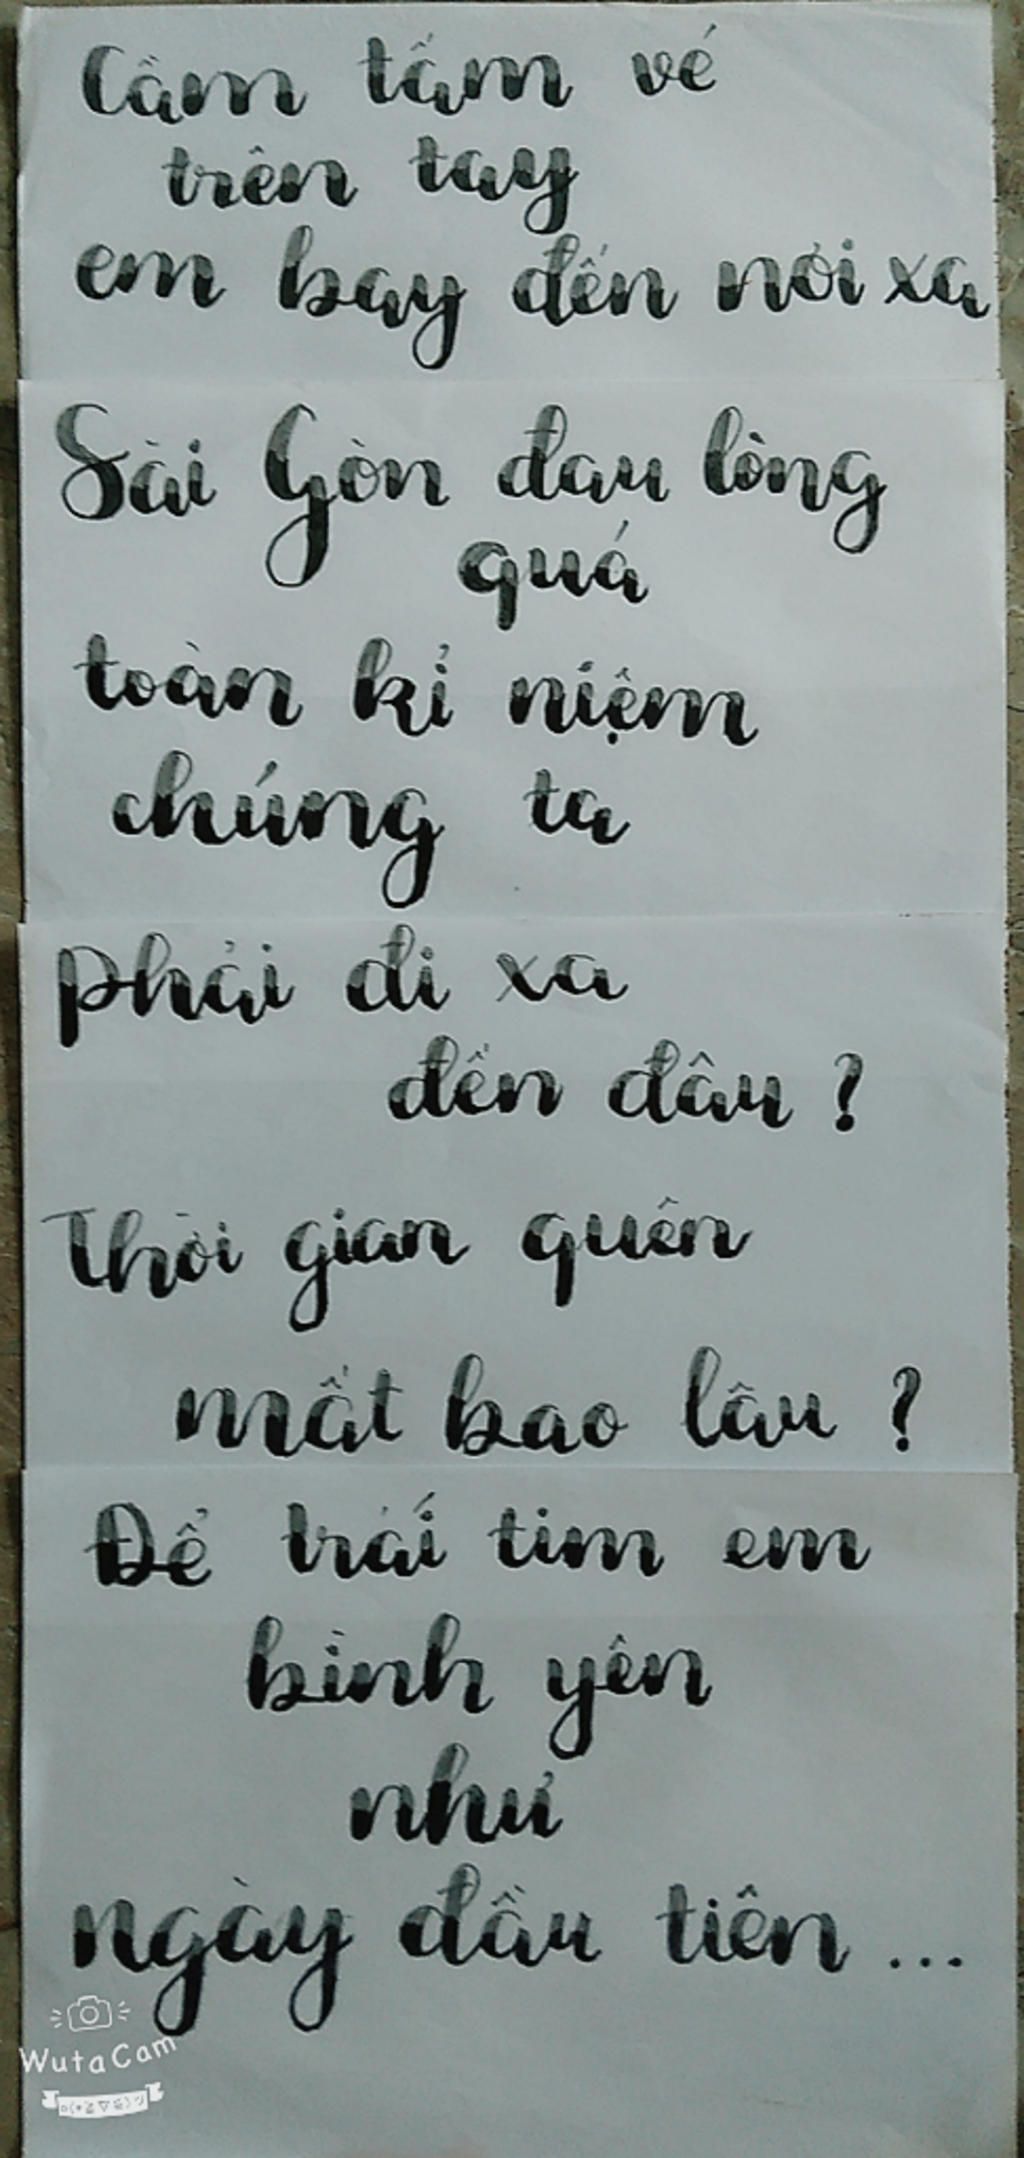 Cầm tấm vé
trên tay
em bay đến nơi xa
Sài Gòn đau lòng
quá
toàn kỉ niệm
chúng ta
Phải đi xa
đến đâu ?
Thời gian quên
mất bao lâu ?
Để trái tim em
bình yên
như
ngày đầu tiên ...
WutaCam